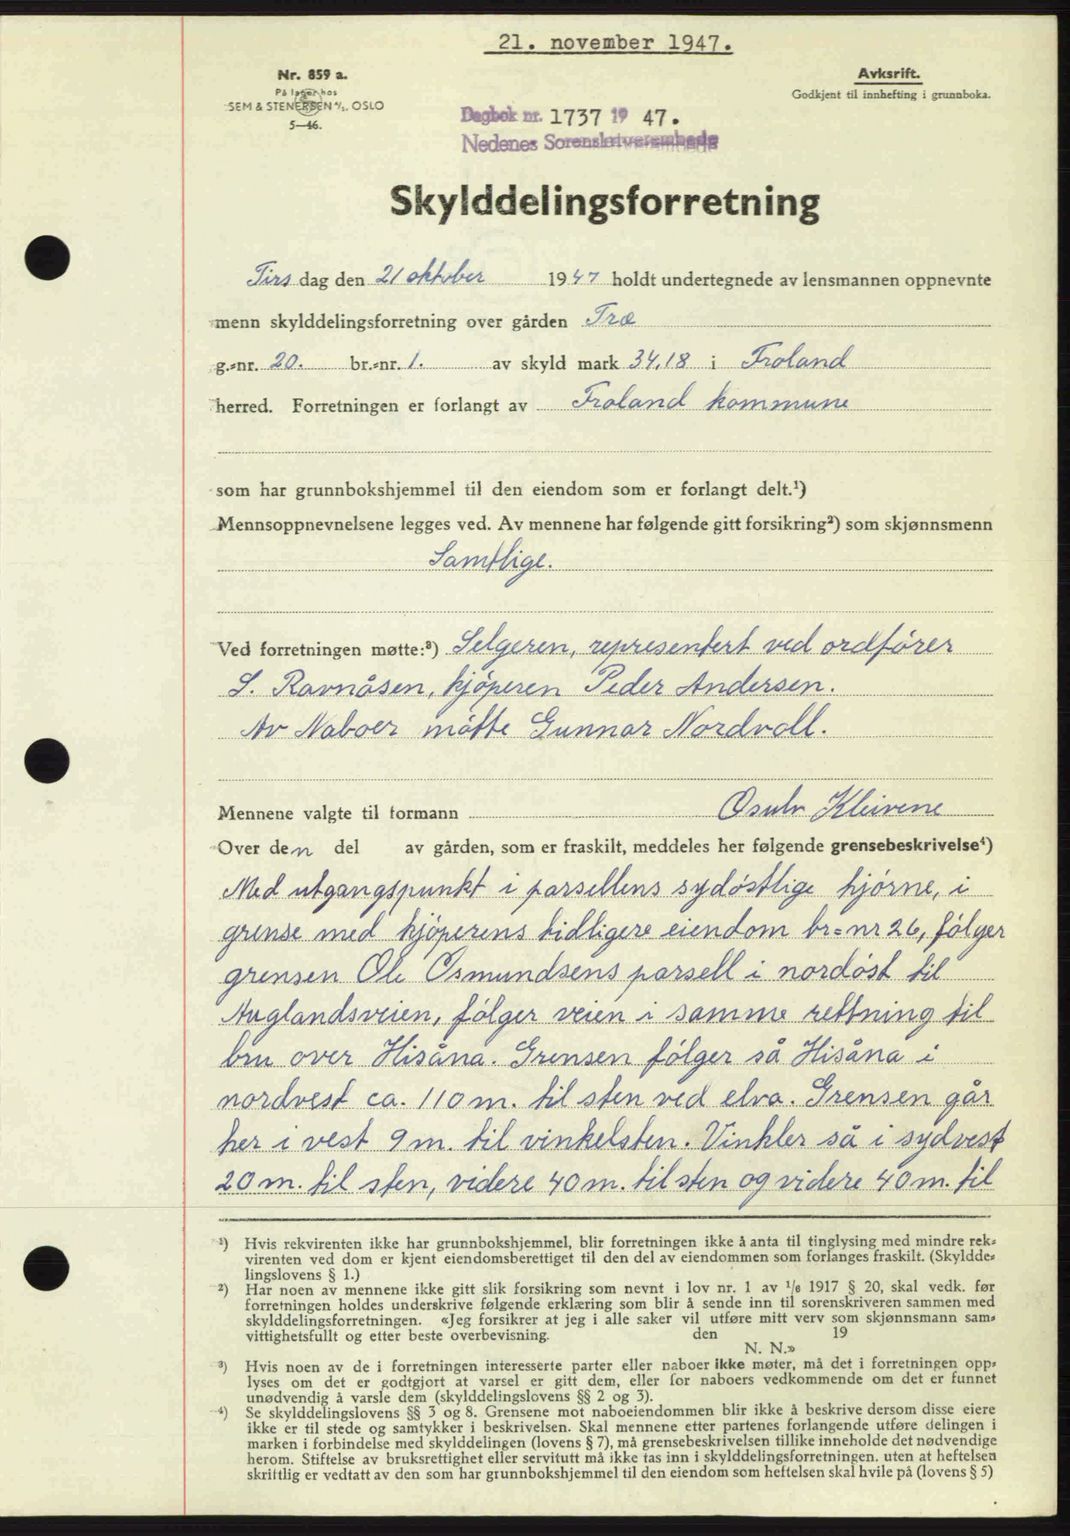 21. november 1947.
Nr. 859 a.
På lager hos
SEM & STENERSEN A/S, OSLO
5—46.
Avskrift.
Godkjent til innhefting i grunnboka.
Dagbok nr. 1737 19 47.
Nedenes Sorenskriverembede
Skylddelingsforretning
Tirs dag den 21 oktober 1947 holdt undertegnede av lensmannen oppnevnte
menn skylddelingsforretning over gården Træ
g.-nr. 20. br.-nr. 1. av skyld mark 34,18 i Froland
herred. Forretningen er forlangt av Froland kommune
som har grunnbokshjemmel til den eiendom som er forlangt delt.¹)
Mennsoppnevnelsene legges ved. Av mennene har følgende gitt forsikring²) som skjønnsmenn
Samtlige.
Ved forretningen møtte:³) Selgeren, representert ved ordfører
S. Ravnåsen, kjøperen Peder Andersen.
Av Naboer møtte Gunnar Nordvoll.
Mennene valgte til formann Osulv Kleivene
Over den del av gården, som er fraskilt, meddeles her følgende grensebeskrivelse⁴)
Med utgangspunkt i parsellens sydøstlige hjørne, i
grense med kjøperens tidligere eiendom br=nr 26, følger
grensen Ole Osmundsens parsell i nordøst til
Auglandsveien, følger veien i samme rettning til
bru over Hisåna. Grensen følger så Hisåna i
nordvest ca. 110 m. til sten ved elva. Grensen går
her i vest 9 m. til vinkelsten. Vinkler så i sydvest
20 m. til sten, videre 40 m. til sten og videre 40 m. til
¹) Hvis rekvirenten ikke har grunnbokshjemmel, blir forretningen ikke å anta til tinglysing med mindre rek-
virenten ved dom er kjent eiendomsberettiget til den del av eiendommen som forlanges fraskilt. (Skyldde-
lingslovens § 1.)
²) Har noen av mennene ikke gitt slik forsikring som nevnt i lov nr. 1 av 1/6 1917 § 20, skal vedk. før
forretningen holdes underskrive følgende erklæring som blir å sende inn til sorenskriveren sammen med
skylddelingsforretningen. «Jeg forsikrer at jeg i alle saker vil utføre mitt verv som skjønnsmann sam-
vittighetsfullt og etter beste overbevisning. den 19
N. N.»
³) Hvis noen av de i forretningen interesserte parter eller naboer ikke møter, må det i forretningen opp-
lyses om det er godtgjort at varsel er gitt dem, eller for naboers vedkommende om det er funnet
unødvendig å varsle dem (skylddelingslovens §§ 2 og 3).
⁴) Se skylddelingslovens §§ 3 og 8. Grensene mot naboeiendommen blir ikke å beskrive dersom disse eiere
ikke er til stede og samtykker i beskrivelsen. Skal mennene etter partenes forlangende utføre delingen i
marken i forbindelse med skylddelingen (lovens § 7), må grensebeskrivelsen tillike inneholde det nødvendige
herom. Stiftelse av bruksrettighet eller servitutt må ikke tas inn i skylddelingsforretningen, uten at heftelsen
skriftlig er vedtatt av den som har grunnbokshjemmel til den eiendom som heftelsen skal hvile på (lovens § 5)